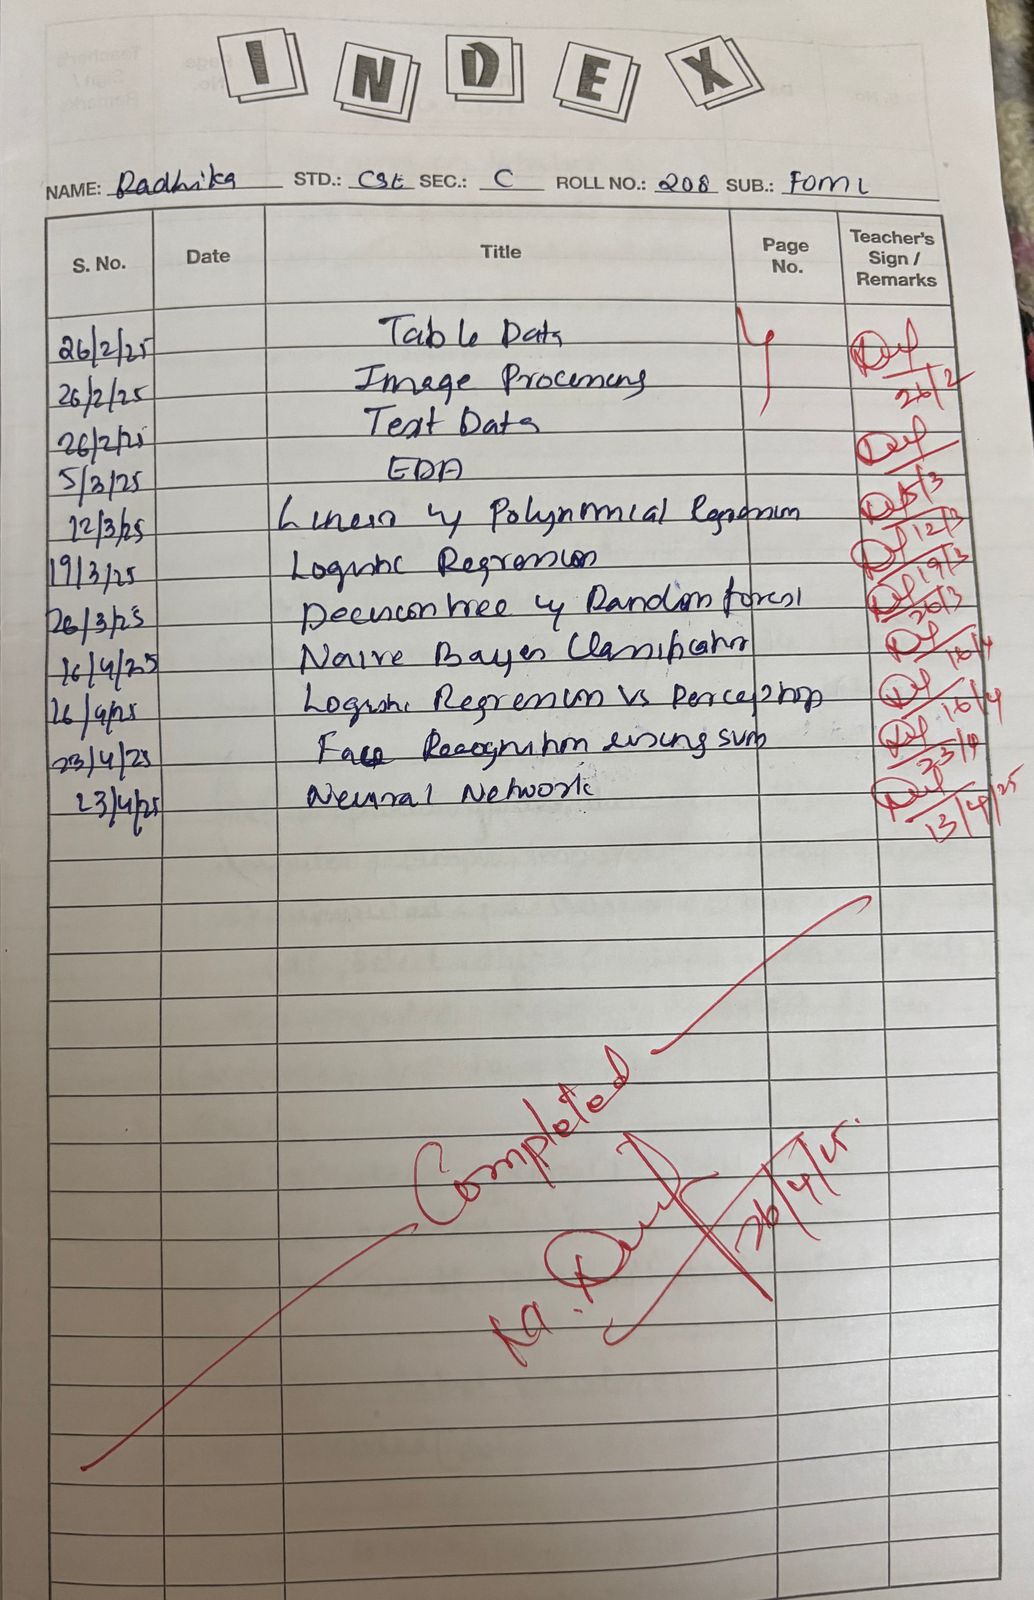 INDEX
NAME: Radhika STD.: CSE SEC.: C ROLL NO.: 208 SUB.: FOML
S. No. Date Title Page No. Teacher's Sign / Remarks
26/2/25 Table Data
26/2/25 Image Processing 26/2
26/2/25 Text Data
5/3/25 EDA 5/3
12/3/25 Linear & Polynomial Regression 12/3
19/3/25 Logistic Regression 19/3
26/3/25 Decision tree & Random forest 26/3
16/4/25 Naive Bayes Classification 16/4
16/4/25 Logistic Regression vs Perceptron 16/4
23/4/25 Face Recognition using SVM 23/4
23/4/25 Neural Network 13/4/25
Completed
26/4/25.